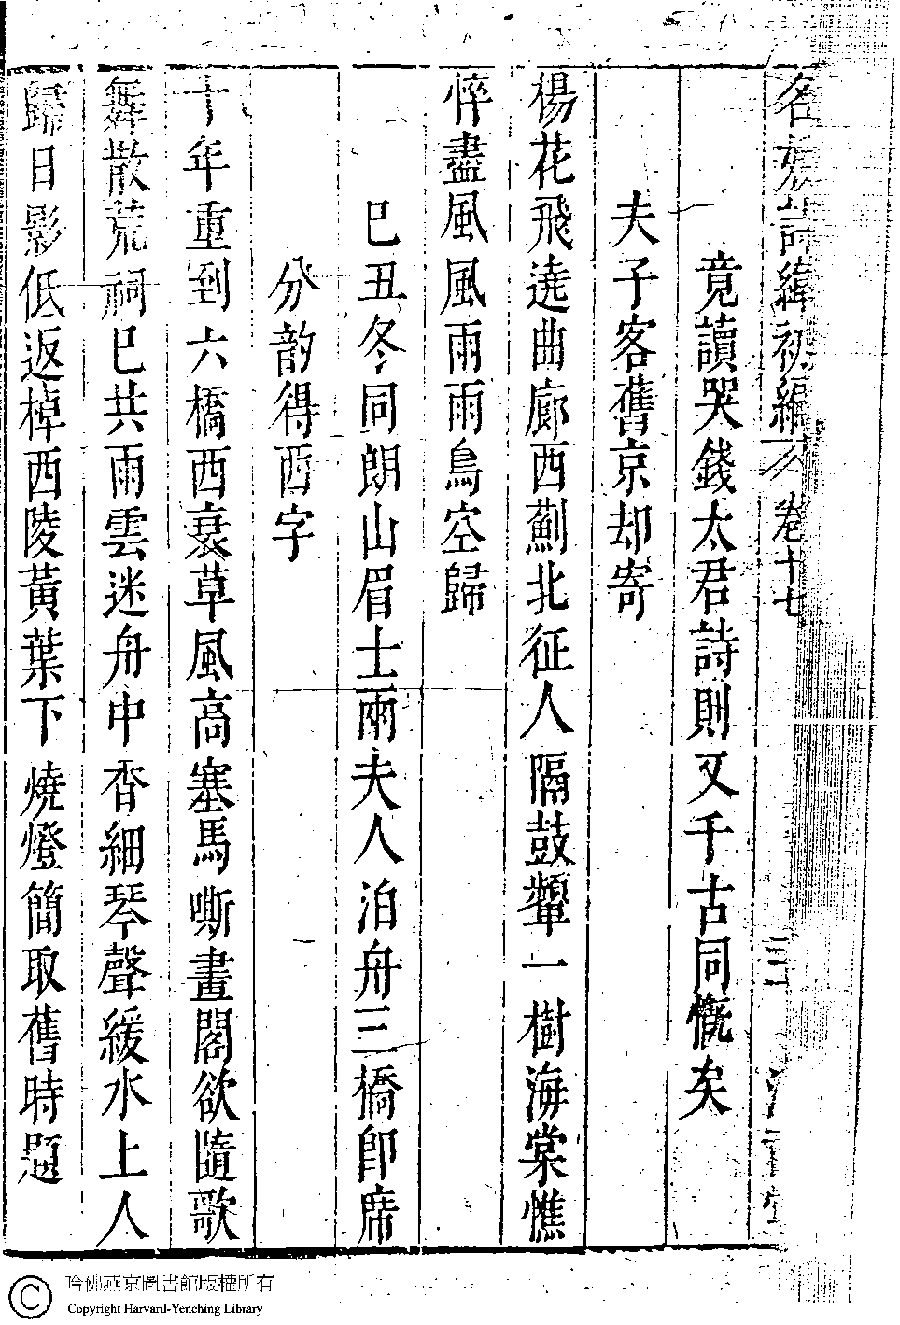 名媛詩緯初編 卷十七 三
竟讀哭錢太君詩則又千古同慨矣
夫子客舊京却寄
楊花飛遶曲廊西薊北征人隔鼓鼙一樹海棠憔
悴盡風風雨雨鳥空歸
巳丑冬同朗山眉士兩夫人泊舟三橋即席
分韵得西字
十年重到六橋西衰草風高塞馬嘶畫閣欲隨歌
舞散荒祠巳共雨雲迷舟中香細琴聲緩水上人
歸日影低返棹西陵黃葉下燒燈簡取舊時題
哈佛燕京圖書館版權所有
Copyright Harvard-Yenching Library